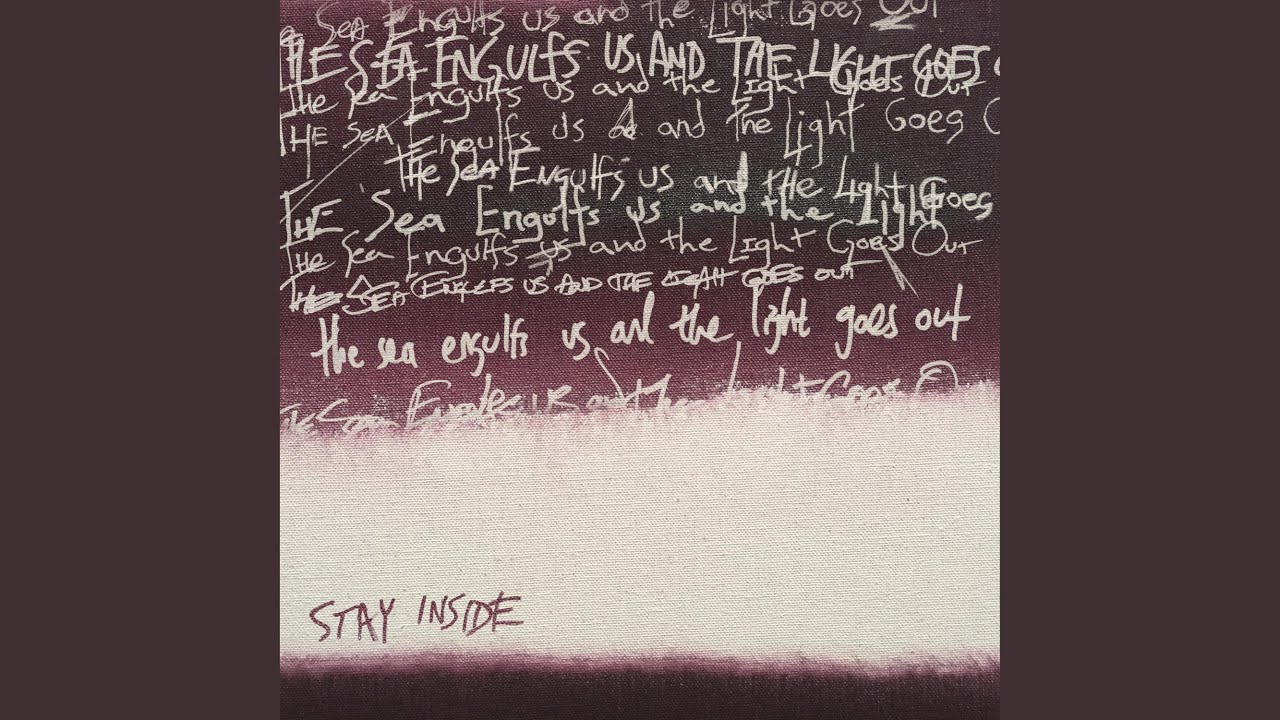 Sea Engulfs us and the Light Goes Out
THE SEA ENGULFS US AND THE LIGHT GOES
the Sea Engulfs us and the Light Goes Out
THE SEA Engulfs us and the Light Goes
THE SEA ENGulfs us and tHe Light Goes
THE Sea Engulfs us and the Light
The Sea Engulfs us and the Light Goes Out
THE SEA ENGULFS US AND THE LIGHT GOES OUT
the sea engulfs us and the light goes out
STAY INSIDE